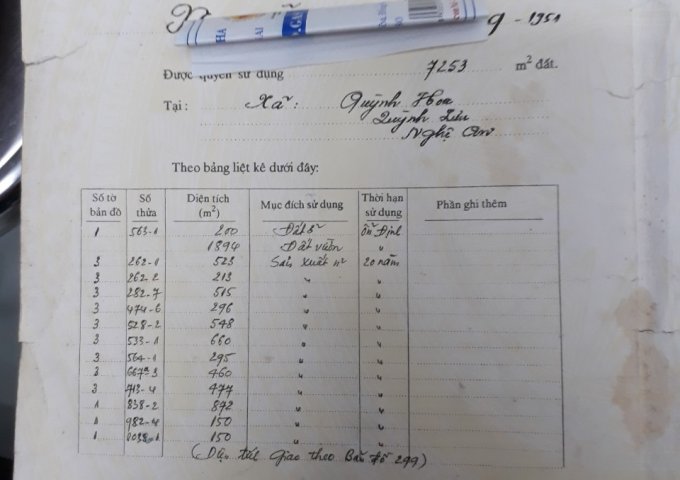 9 - 1951
Được quyền sử dụng 7253 m² đất.
Tại : Xã : Quỳnh Hoa
Quỳnh Lưu
Nghệ An
Theo bảng liệt kê dưới đây:
Số tờ bản đồ Số thửa Diện tích (m²) Mục đích sử dụng Thời hạn sử dụng Phần ghi thêm
1 563-1 200 Đất ở ổn định
1894 Đất vườn "
3 262-1 523 Sản xuất n² 20 năm
3 262-2 213 " "
3 282-7 515 " "
3 474-6 296 " "
3 528-2 548 " "
3 533-1 660 " "
3 564-1 295 " "
3 667ª-3 460 " "
3 713-4 477 " "
1 838-2 872 " "
1 982-4 150 " "
1 150 " "
đất giao theo Bản đồ 299)